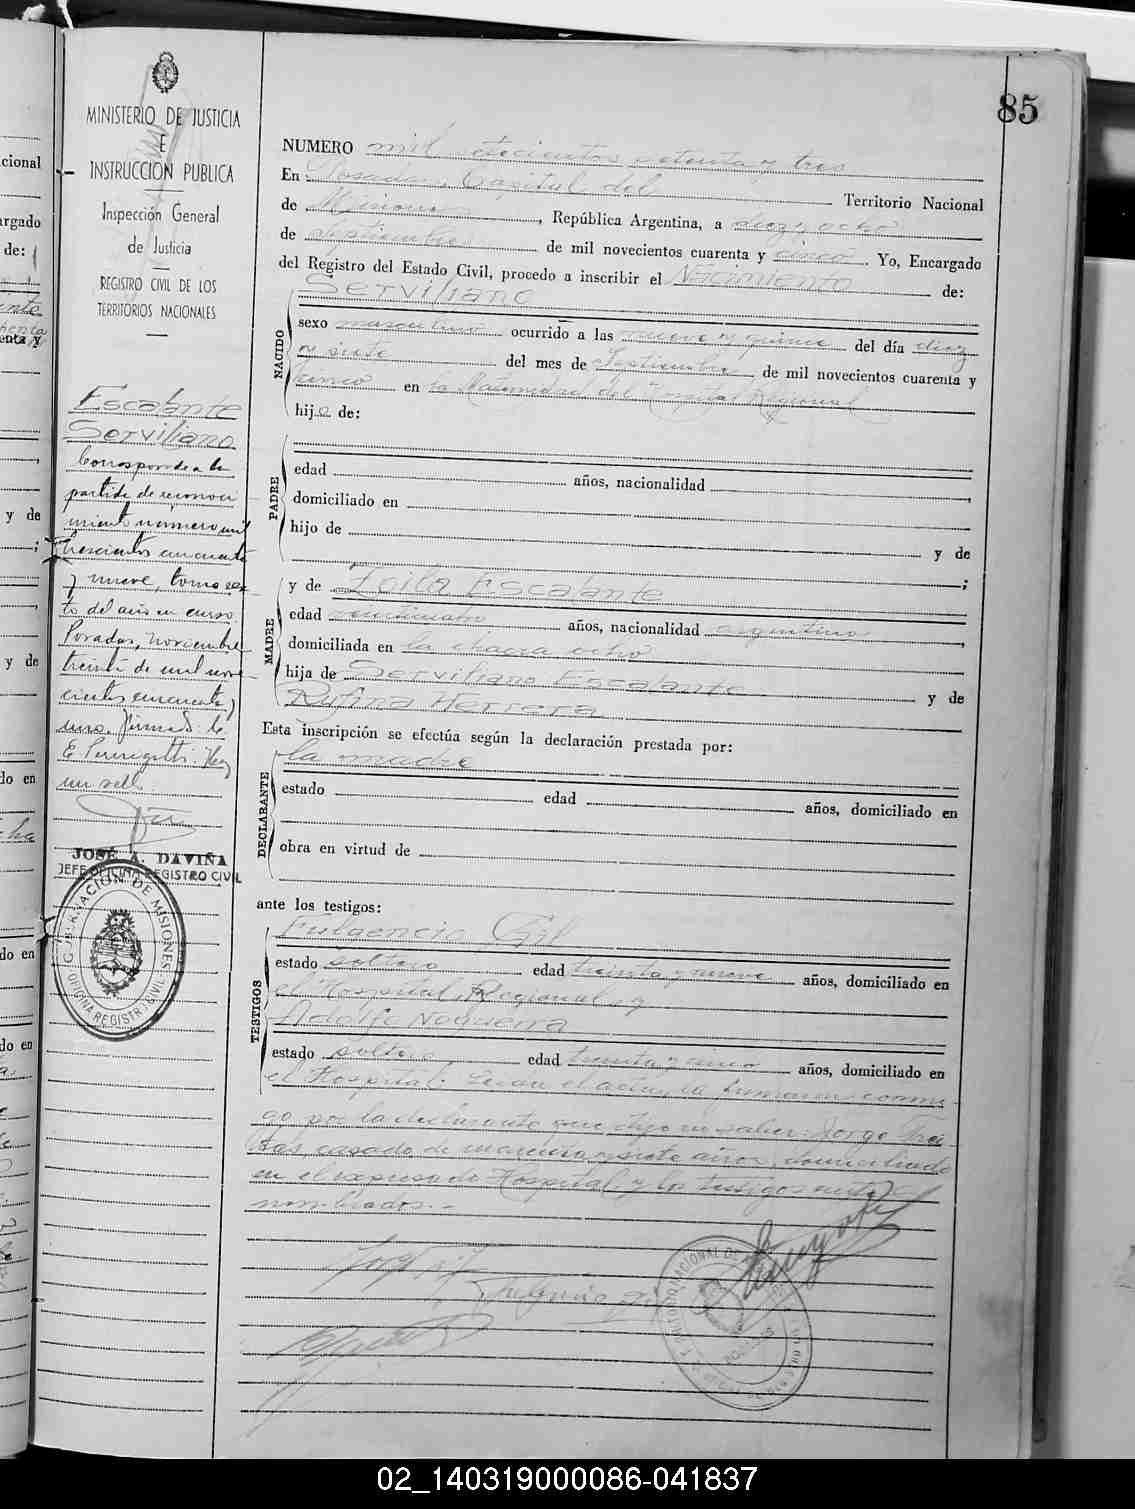 85
MINISTERIO DE JUSTICIA
E
INSTRUCCION PUBLICA
Inspección General
de Justicia
REGISTRO CIVIL DE LOS
TERRITORIOS NACIONALES
Escalante
Serviliano
Corresponde a la
partida de reconoci
miento número mil
trescientos cincuenta
y nueve, tomo sex
to del año en curso
Posadas, noviembre
treinta de mil nove
cientos cincuenta y
uno. Firmado:
E. Hay
un sello.
JOSÉ A. DAVIÑA
JEFE OFICINA REGISTRO CIVIL
GOBERNACION DE MISIONES
OFICINA REGISTRO CIVIL
NUMERO mil setecientos setenta y tres
En Posadas, Capital del Territorio Nacional
de Misiones, República Argentina, a diez y ocho
de septiembre de mil novecientos cuarenta y cinco. Yo, Encargado
del Registro del Estado Civil, procedo a inscribir el Nacimiento de:
Serviliano
NACIDO
sexo masculino ocurrido a las nueve y quince del día diez
y siete del mes de Septiembre de mil novecientos cuarenta y
cinco en la Maternidad del Hospital Regional
hijo de:
PADRE
edad años, nacionalidad
domiciliado en
hijo de
y de
;
MADRE
y de Zoila Escalante
edad veinticuatro años, nacionalidad argentina
domiciliada en la chacra ocho
hija de Serviliano Escalante y de
Rufina Herrera
Esta inscripción se efectúa según la declaración prestada por:
la madre
DECLARANTE
estado edad años, domiciliado en
obra en virtud de
ante los testigos:
Fulgencio Gil
TESTIGOS
estado soltero edad treinta y nueve años, domiciliado en
el Hospital Regional y
Adolfo Nogueira
estado soltero edad treinta y cinco años, domiciliado en
el Hospital. Leída el acta, la firmaron conmi-
go por la declarante que dijo no saber Jorge
casado, de cuarenta y siete años, domiciliado
en el expresado Hospital y los testigos ante
nombrados.-
02_140319000086-041837